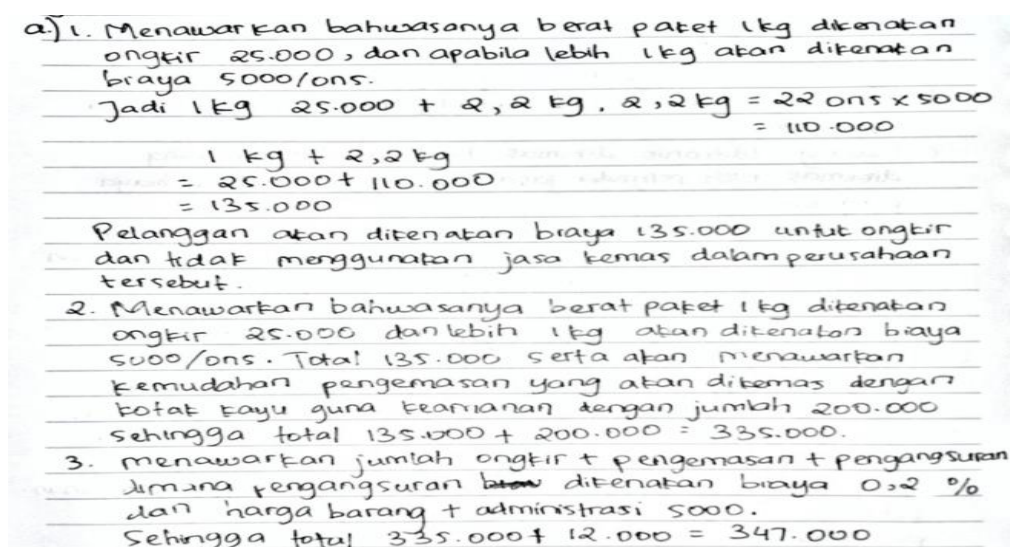 a.) 1. Menawarkan bahwasanya berat paket 1kg dikenakan
ongkir 25.000, dan apabila lebih 1kg akan dikenakan
biaya 5000/ons.
Jadi 1kg 25.000 + 2,2 kg. 2,2kg = 22 ons x 5000
= 110.000
1 kg + 2,2kg
= 25.000 + 110.000
= 135.000
Pelanggan akan dikenakan biaya 135.000 untuk ongkir
dan tidak menggunakan jasa kemas dalam perusahaan
tersebut.
2. Menawarkan bahwasanya berat paket 1kg dikenakan
ongkir 25.000 dan lebih 1kg akan dikenakan biaya
5000/ons. Total 135.000 serta akan menawarkan
kemudahan pengemasan yang akan dikemas dengan
kotak kayu guna keamanan dengan jumlah 200.000
sehingga total 135.000 + 200.000 = 335.000.
3. menawarkan jumlah ongkir + pengemasan + pengangsuran
dimana pengangsuran dikenakan biaya 0,2 %
dan harga barang + administrasi 5000.
Sehingga total 335.000 + 12.000 = 347.000